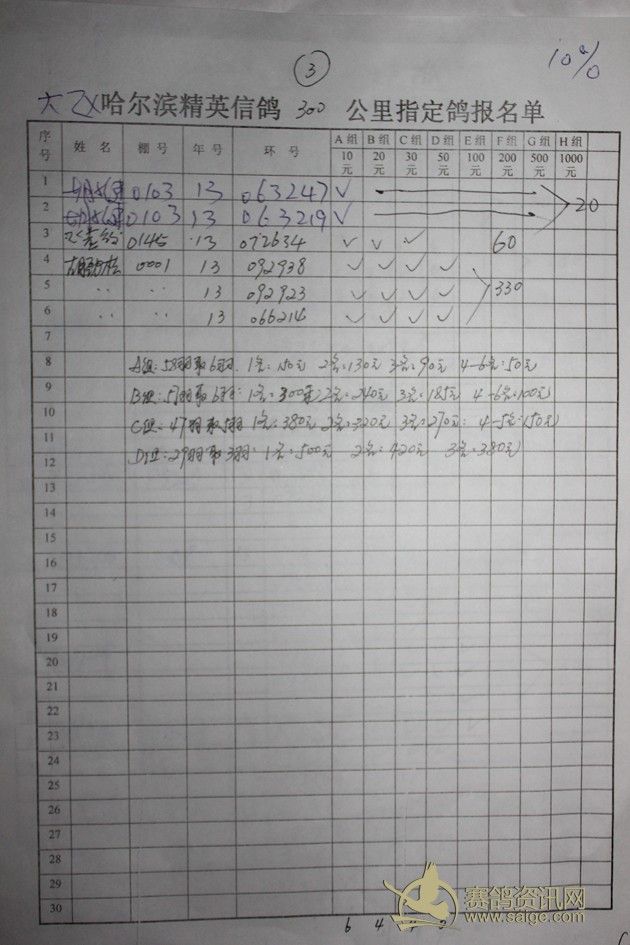 ③
10%
哈尔滨精英信鸽 300 公里指定鸽报名单
序号 姓名 棚号 年号 环号 A组10元 B组20元 C组30元 D组50元 E组100元 F组200元 G组500元 H组1000元
1 0103 13 063247 ✓
2 0103 13 063219 ✓ 20
3 0145 13 072634 ✓ ✓ ✓ 60
4 0001 13 092938 ✓ ✓ ✓ ✓
5 〃 〃 13 092923 ✓ ✓ ✓ ✓ 330
6 〃 〃 13 066214 ✓ ✓ ✓ ✓
7
8 A组:58羽取6羽. 1名:150元 2名:130元 3名:90元 4-6名:50元
9 B组:57羽取6羽: 1名:300元 2名:240元 3名:185元 4-6名:100元
10 C组:47羽取5羽 1名:380元 2名:320元 3名:270元: 4-5名:150元
11
12 D组:29羽取3羽: 1名:500元 2名:420元 3名:380元
13
14
15
16
17
18
19
20
21
22
23
24
25
26
27
28
29
30
6 4 4 3
赛鸽资讯网
www.saige.com